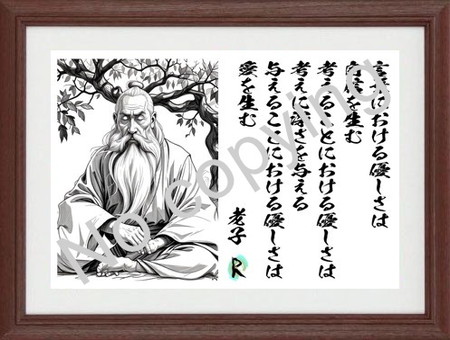 言葉における優しさは
自信を生む
考えることにおける優しさは
考えに深さを与える
与えることにおける優しさは
愛を生む
老子
R
No copying